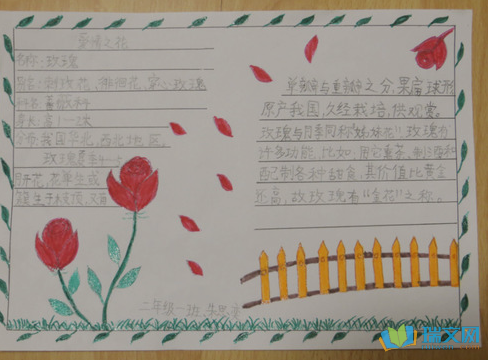 爱情之花
名称:玫瑰
别名:刺玫花、徘徊花、穿心玫瑰
科名:蔷薇科
身长:高1—2米
分布我国华北、西北地区,
玫瑰 4—5
月开花,花单生或
簇生于枝顶,又有
单瓣与重瓣之分,果扁球形
原产我国,久经栽培,供观赏。
玫瑰与月季同称“姊妹花”!玫瑰有
许多功能,比如:用它熏茶、制酒和
配制各种甜食,其价值比黄金
还高,故玫瑰有“金花”之称。
二年级一班